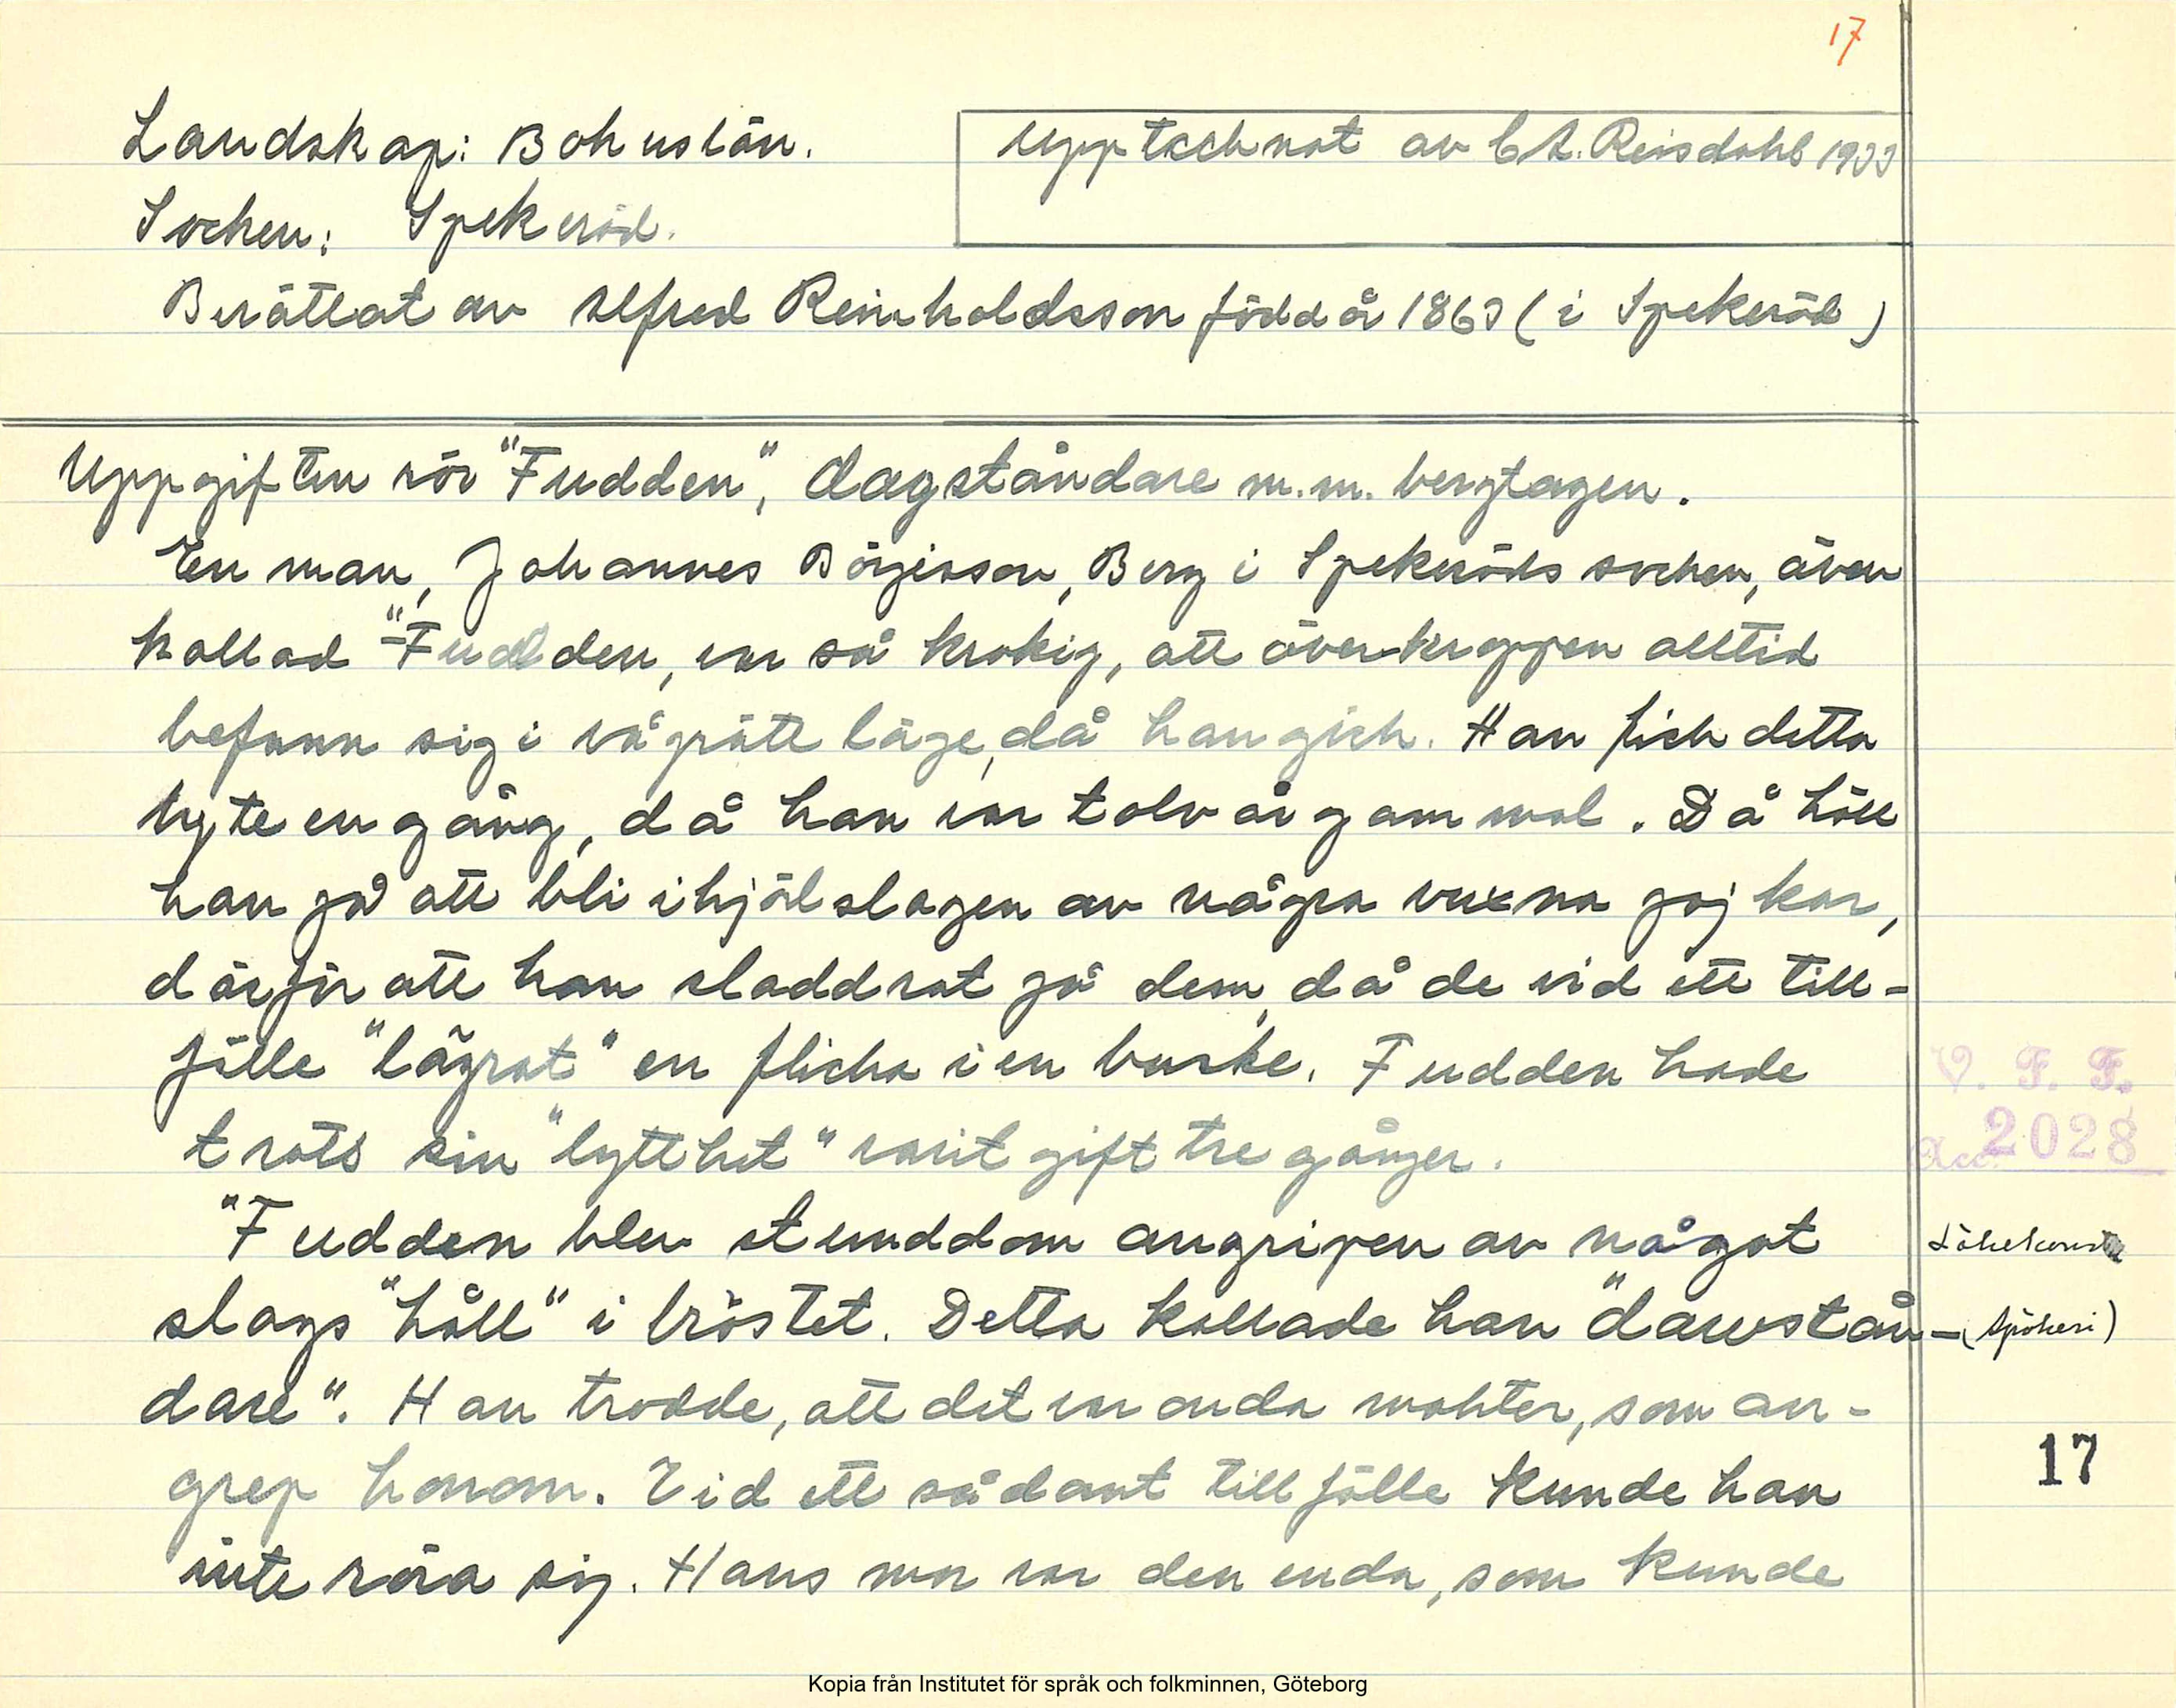 17
Landskap: Bohuslän.
Upptecknat av C A. Reisdahl 1933
Socken: Spekeröd.
Berättat av Alfred Reinholdsson född år 1863 (i Spekeröd)
Uppgiften rör "Fudden", dagståndare m.m. bergtagen.
En man, Johannes Börjesson, Berg i Spekeröds socken, även
kallad "Fudden, var så krokig, att överkroppen alltid
befann sig i vågrätt läge, då han gick. Han fick detta
lyte en gång, då han var tolv år gammal. Då höll
han på att bli ihjälslagen av några vuxna pojkar,
därför att han sladdrat på dem, då de vid ett till-
fälle "lägrat" en flicka i en buske. Fudden hade
trots sin "lytthet" varit gift tre gånger.
V. F. F.
Acc. 2028
"Fudden blev stunddom angripen av något
Läkekonst
slags "håll" i bröstet. Detta kallade han "dawstån-
(Spökeri)
dare". Han trodde, att det var onda makter, som an-
grep honom. Vid ett sådant tillfälle kunde han
17
inte röra sig. Hans mor var den enda, som kunde
Kopia från Institutet för språk och folkminnen, Göteborg